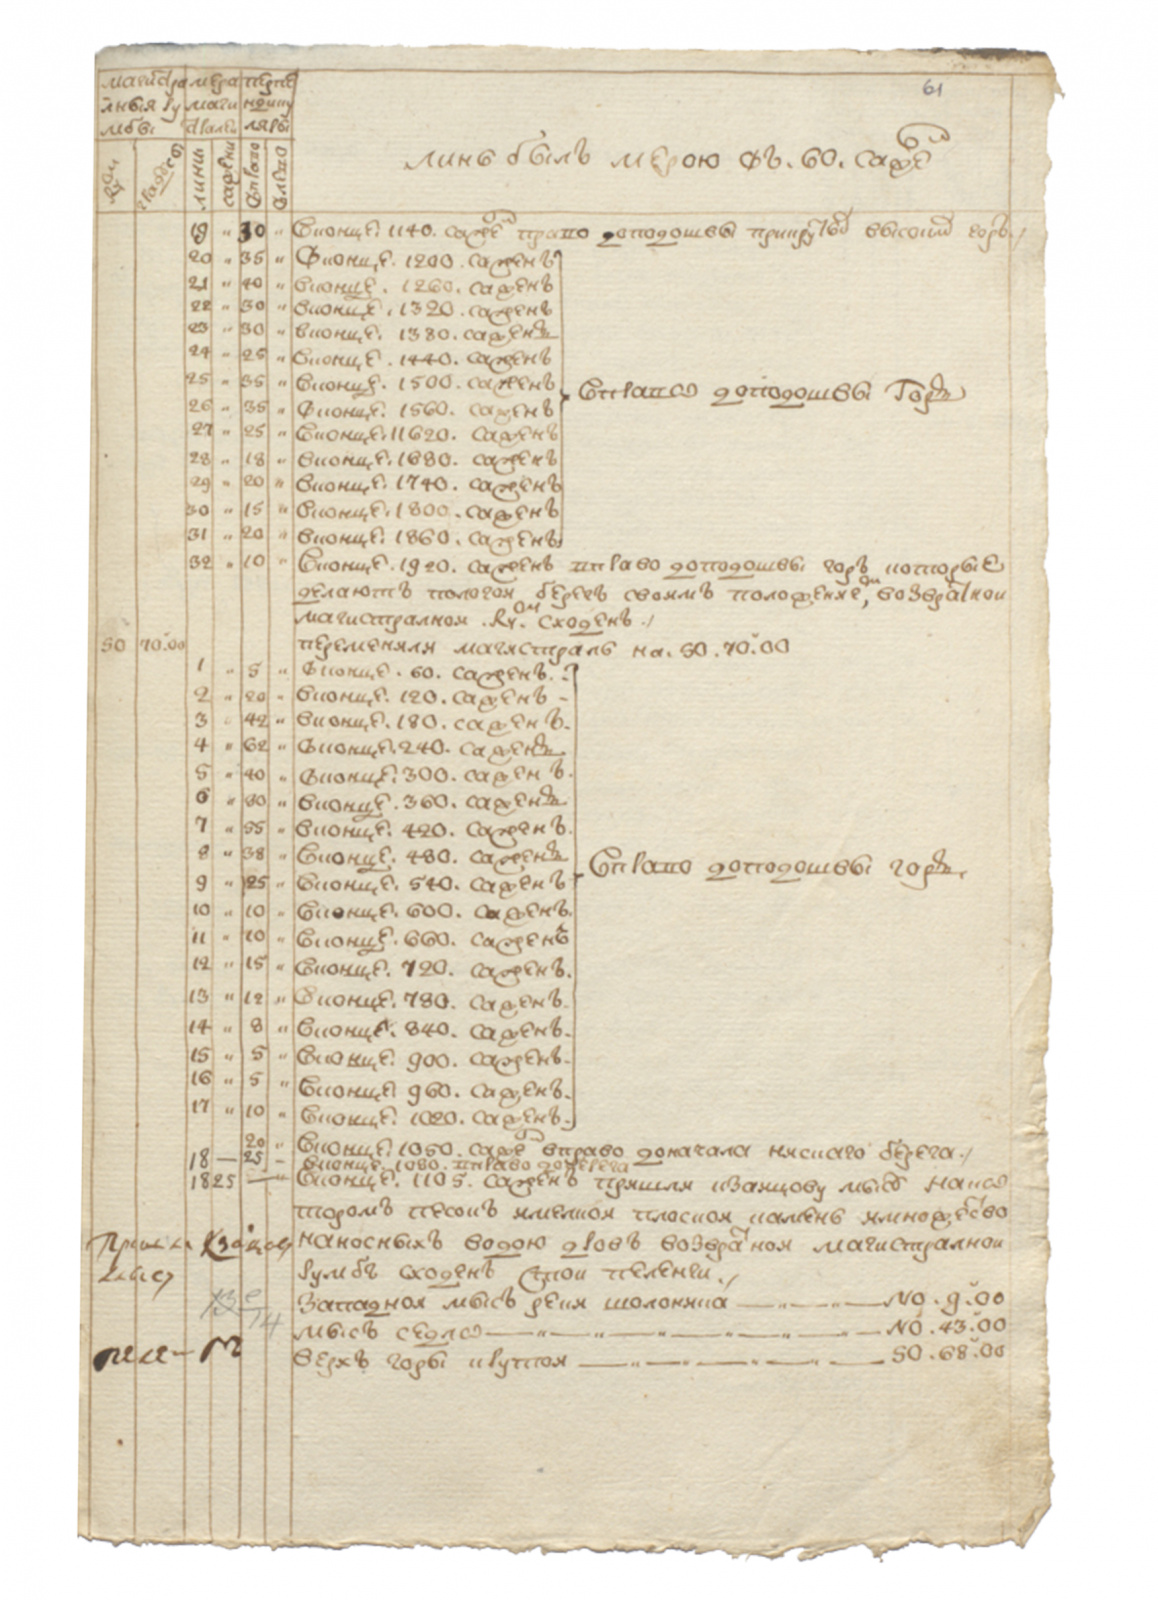 61
магистра мера перпе
лныя ру маги ндику
мбы страли ляры
румбы градусы линии сажени вправо влево
линь былъ мерою въ. 60. саженъ
19 " 30 " вконце. 1140. саженъ право доподошвы прикрутой высокой горы./
20 " 35 " вконце. 1200. саженъ
21 " 40 " вконце. 1260. саженъ
22 " 30 " вконце. 1320. саженъ
23 " 30 " вконце. 1380. саженъ
24 " 25 " вконце. 1440. саженъ
25 " 35 " вконце. 1500. саженъ
вправо доподошвы горъ
26 " 35 " вконце. 1560. саженъ
27 " 25 " вконце. 1620. саженъ
28 " 18 " вконце. 1680. саженъ
29 " 20 " вконце. 1740. саженъ
30 " 15 " вконце. 1800. саженъ
31 " 20 " вконце. 1860. саженъ
32 " 10 " вконце. 1920. саженъ вправо доподошвы горъ которые
делаютъ пологой берегъ своимъ положениемъ, возвратной
магистралной румъ сходенъ./
SO 70.00 переменили магистраль на. SO. 70.00
1 " 5 " вконце. 60. саженъ.
2 " 20 " вконце. 120. саженъ -
3 " 42 " вконце. 180. саженъ.
4 " 62 " вконце. 240. саженъ
5 " 40 " вконце. 300. саженъ.
6 " 30 " вконце. 360. саженъ
7 " 35 " вконце. 420. саженъ.
8 " 38 " вконце. 480. саженъ
вправо доподошвы горъ.
9 " 25 " вконце. 540. саженъ
10 " 10 " вконце. 600. саженъ.
11 " 10 " вконце. 660. саженъ
12 " 15 " вконце. 720. саженъ.
13 " 12 " вконце. 780. саженъ.
14 " 8 " вконце. 840. саженъ.
15 " 5 " вконце. 900. саженъ.
16 " 5 " вконце. 960. саженъ.
17 " 10 " вконце. 1020. саженъ.
20 " вконце. 1050. саженъ вправо доначала нискаго берега./
18 — 25 – вконце. 1080. вправо доберега
18 25 — " вконце. 1105. саженъ пришли кзаицову мысу накто
тором песокъ имелкой плоской камень имножество
наносныхъ водою дровъ возвратной магистралной
румбъ сходенъ стой пеленги./
западной мысъ реки шолонина — " — " — NO. 9.00
мысъ седло — " — " — " — " — " — NO. 43.00
верхъ горы крутой — " — " — " — " — SO. 68.00